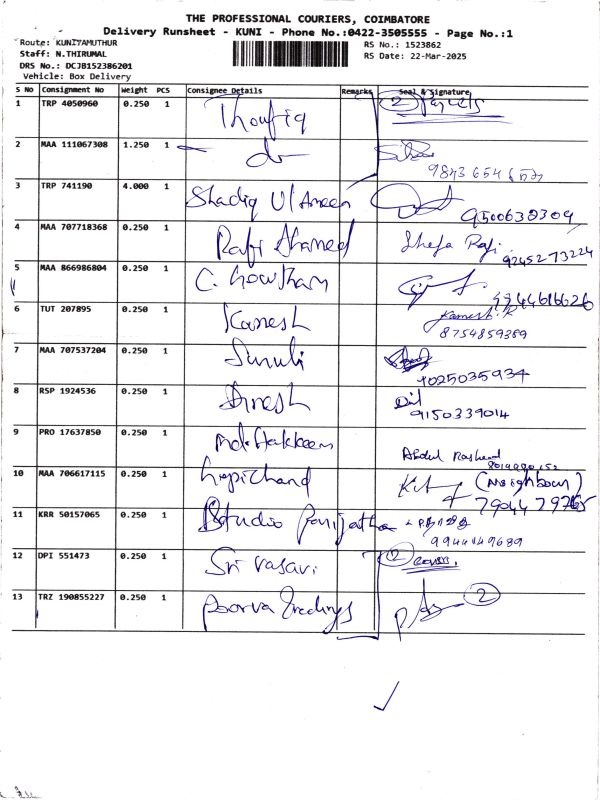 THE PROFESSIONAL COURIERS, COIMBATORE
Delivery Runsheet - KUNI - Phone No.:0422-3505555 - Page No.:1
Route: KUNIYAMUTHUR
RS No.: 1523862
Staff: N.THIRUMAL
RS Date: 22-Mar-2025
DRS No.: DCJB152386201
Vehicle: Box Delivery
S No Consignment No Weight PCS Consignee Details Remarks Seal & Signature
1 TRP 4050960 0.250 1 Thoufiq 2
2 MAA 111067308 1.250 1 do
3 TRP 741190 4.000 1 Shadiq Ul Ameen 9500630309
4 MAA 707718368 0.250 1 Rafi Ahamed 9245273224
5 MAA 866986804 0.250 1 C. Gowtham
6 TUT 207895 0.250 1 Kamesh Kamesh.K
8754859369
7 MAA 707537204 0.250 1
8 RSP 1924536 0.250 1 Dinesh
9150339014
9 PRO 17637850 0.250 1 Md. Hakkeem Abdul Rasheed
10 MAA 706617115 0.250 1 Gopichand (Neighbour)
11 KRR 50157065 0.250 1 Studio
9944149689
12 DPI 551473 0.250 1 Sri Vasavi 2 covers.
13 TRZ 190855227 0.250 1 Poorva Tradings 2